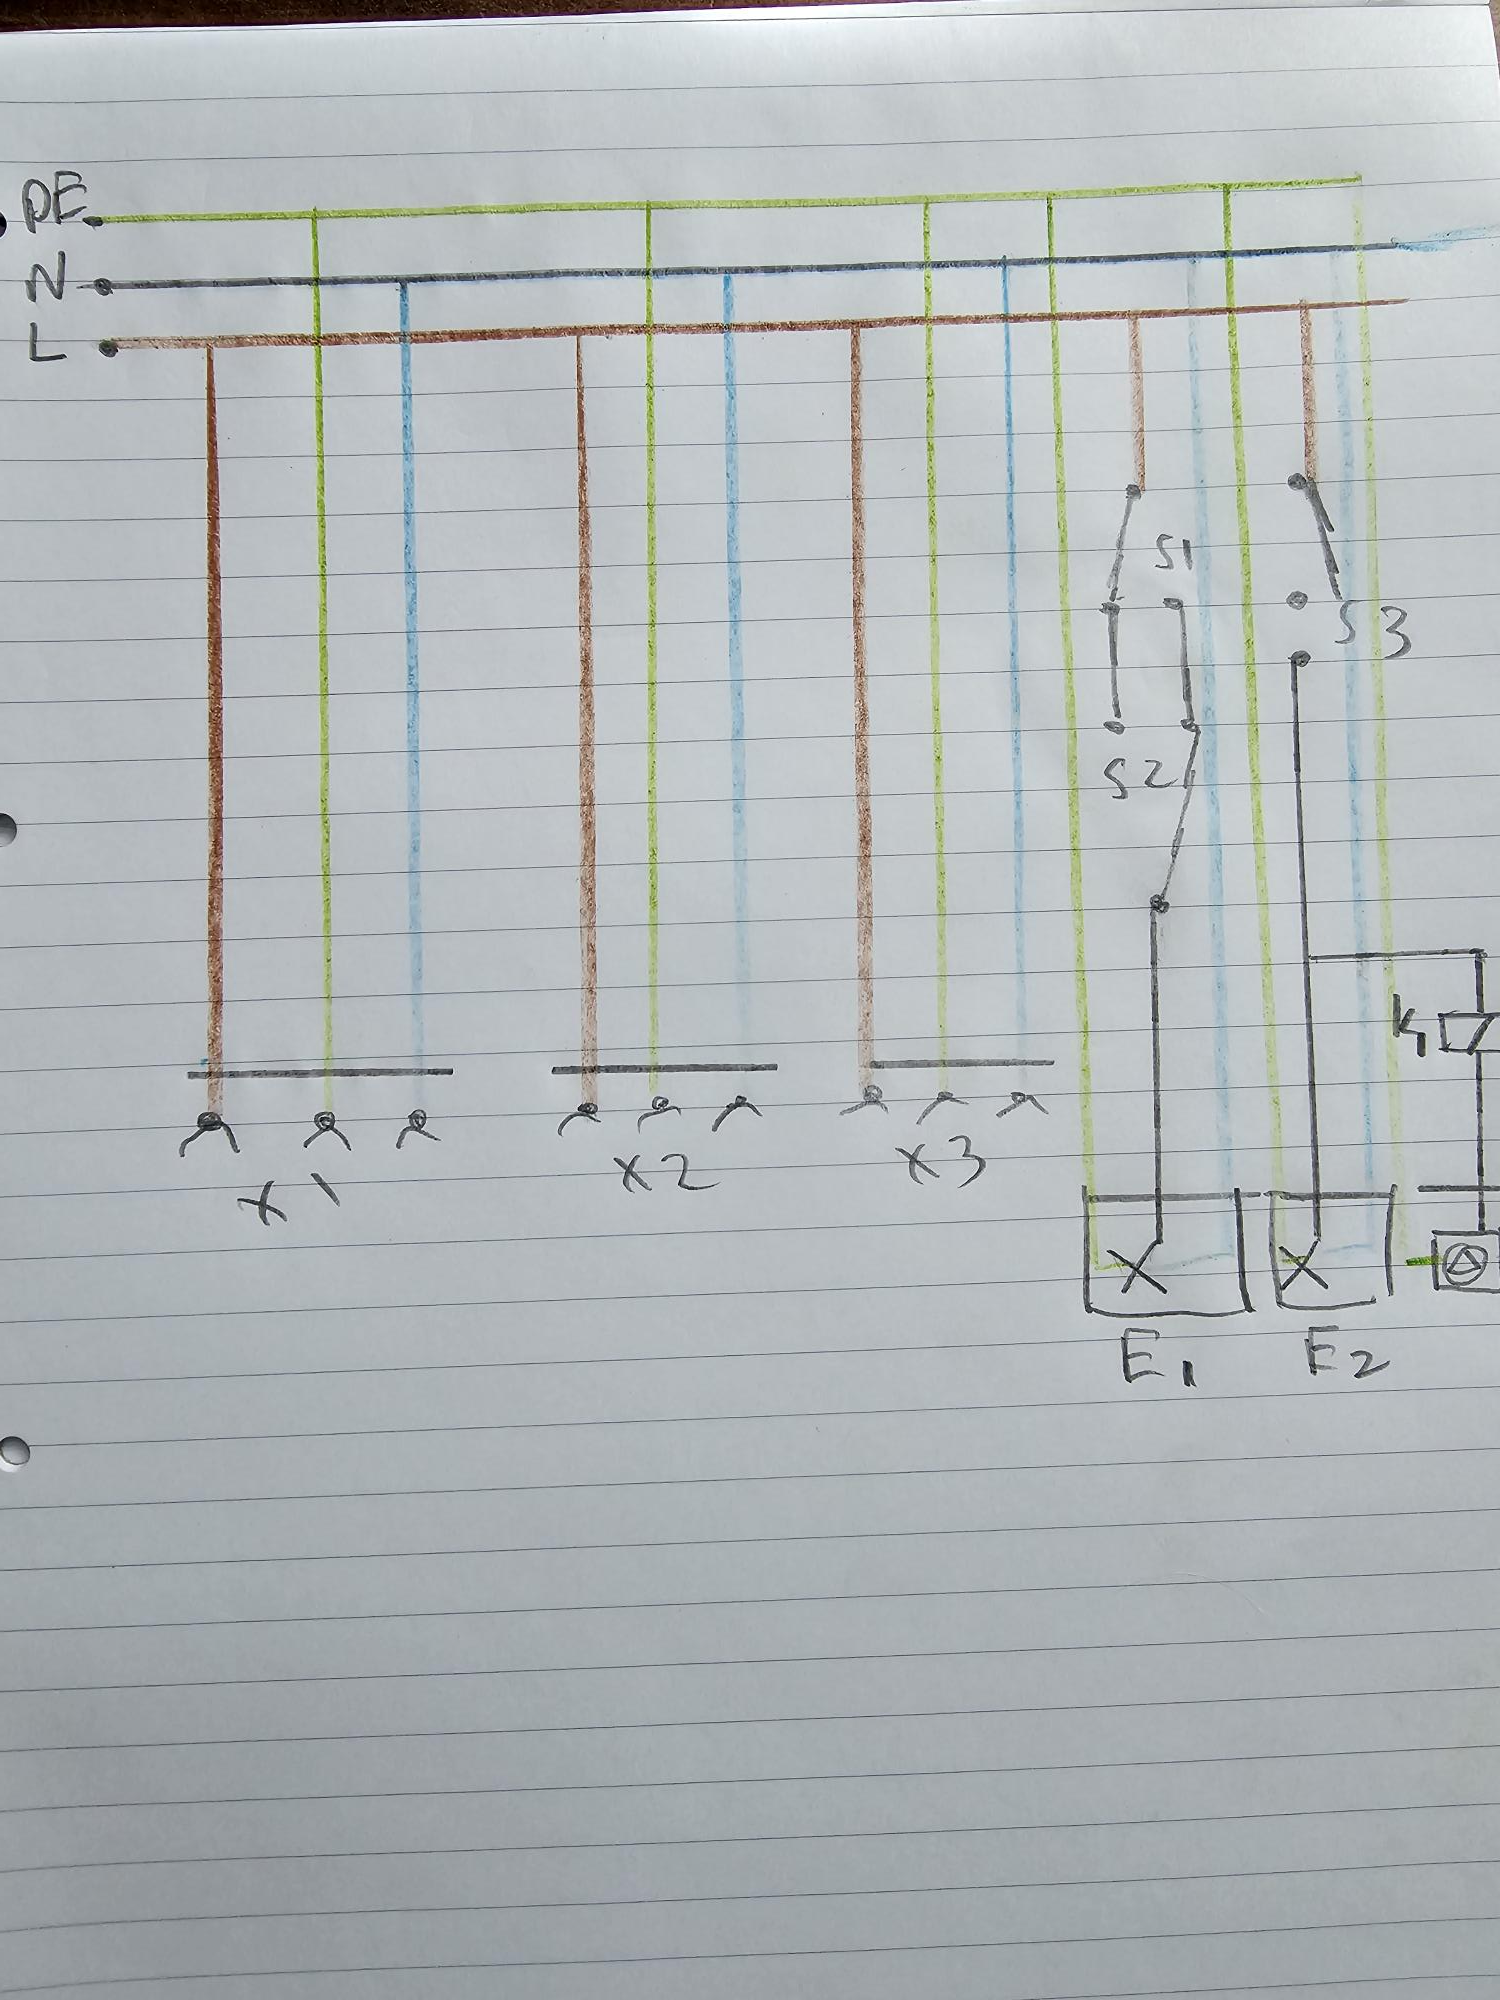 PE
N
L
S1
S3
S2
K1
X1
X2
X3
E1
E2